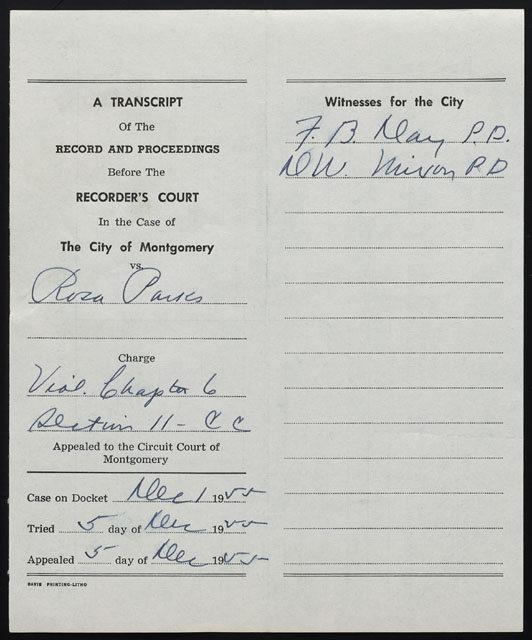 A TRANSCRIPT
Of The
RECORD AND PROCEEDINGS
Before The
RECORDER'S COURT
In the Case of
The City of Montgomery
vs.
Rosa Parks
Charge
Viol. Chapter 6
Section 11 - C C
Appealed to the Circuit Court of
Montgomery
Case on Docket Dec 1 1955
Tried 5 day of Dec 1955
Appealed 5 day of Dec 1955
DAVIS PRINTING-LITHO
Witnesses for the City
F. B. Day P.D.
D.W. Mixon P.D